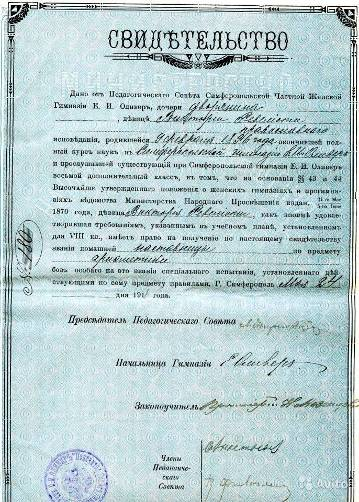 СВИДѢТЕЛЬСТВО
Дано отъ Педагогическаго Совѣта Симферопольской Частной Женской
Гимназіи Е. И. Оливеръ, дочери дворянина
дѣвицѣ Викторіи православнаго
исповѣданія, родившейся 9 февраля года, окончившей пол-
ный курсъ наукъ въ Симферопольской гимназіи Оливеръ
и прослушавшей существующій при Симферопольской гимназіи Е. И. Оливеръ
восьмой дополнительный классъ, въ томъ, что на основаніи § 43 и 44
Высочайше утвержденнаго положенія о женскихъ гимназіяхъ и прогимна-
зіяхъ вѣдомства Министерства Народнаго Просвѣщенія
1870 года, дѣвица Викторія какъ вполнѣ удовле-
творившая требованіямъ, указаннымъ въ учебномъ планѣ, установленномъ
для VIII кл., имѣетъ право на полученіе по настоящему свидѣтельству
званія домашней наставницы по предмету
ариѳметики
безъ особаго на это званіе спеціальнаго испытанія, установленнаго дѣй-
ствующими по сему предмету правилами. Г. Симферополь, Мая 24
дня 191 года.
Предсѣдатель Педагогическаго Совѣта
Начальница Гимназіи Е. Оливеръ
Законоучитель
Члены
Педагогиче-
скаго
Совѣта
Avito